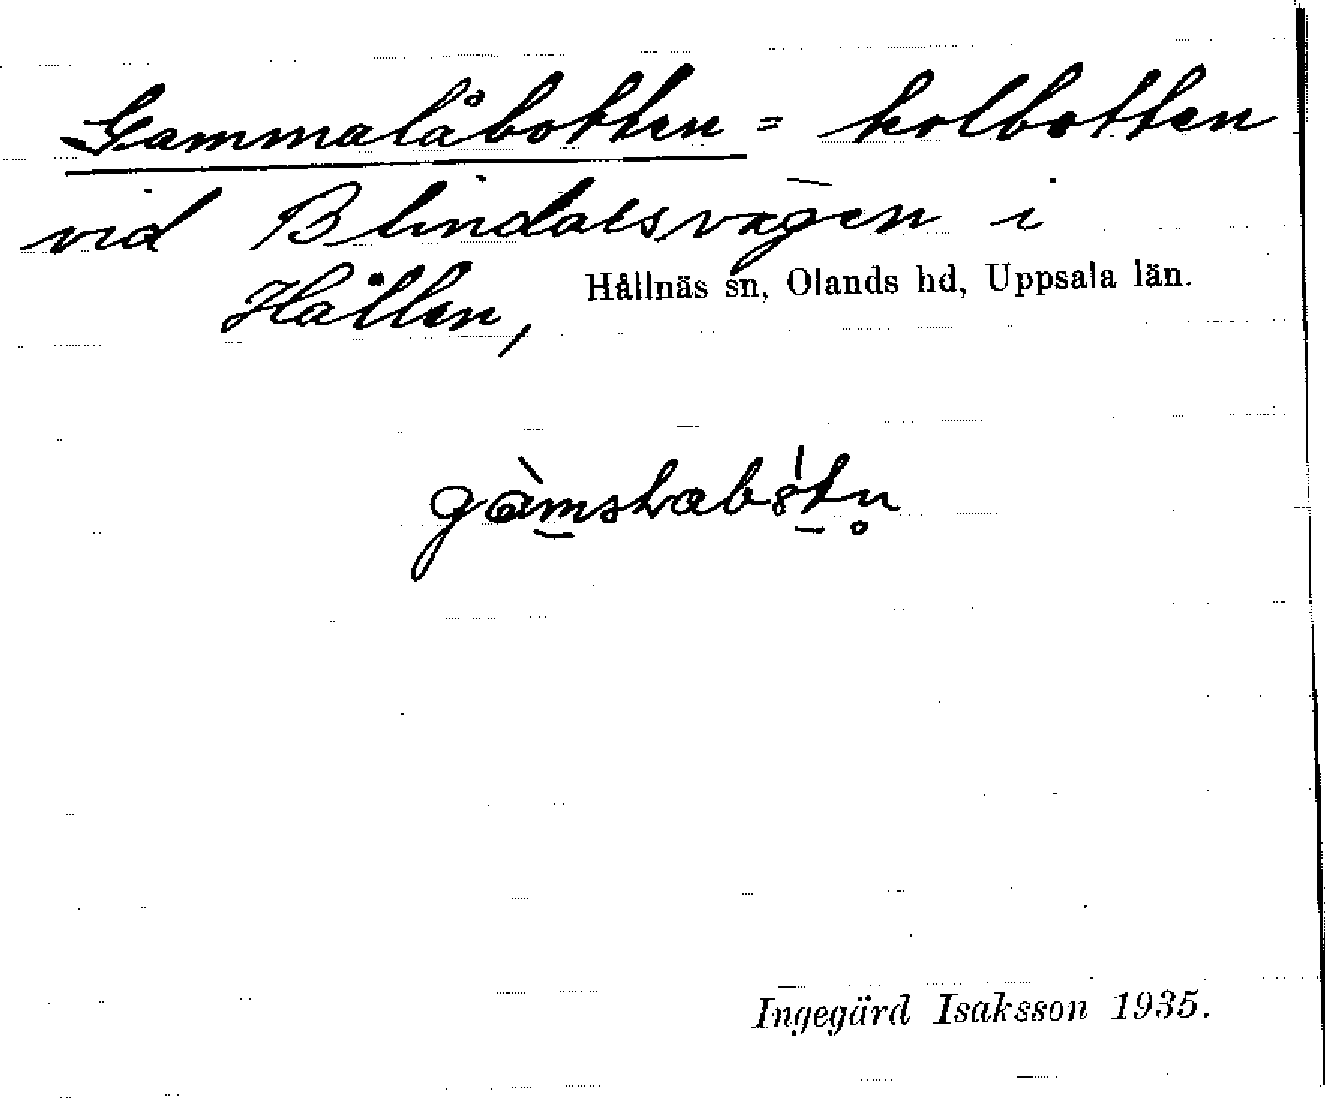 Gammalåbotten = kolbotten
vid Blindalsvägen i
Hållen, Hållnäs sn, Olands hd, Uppsala län.
Ingegärd Isaksson 1935.